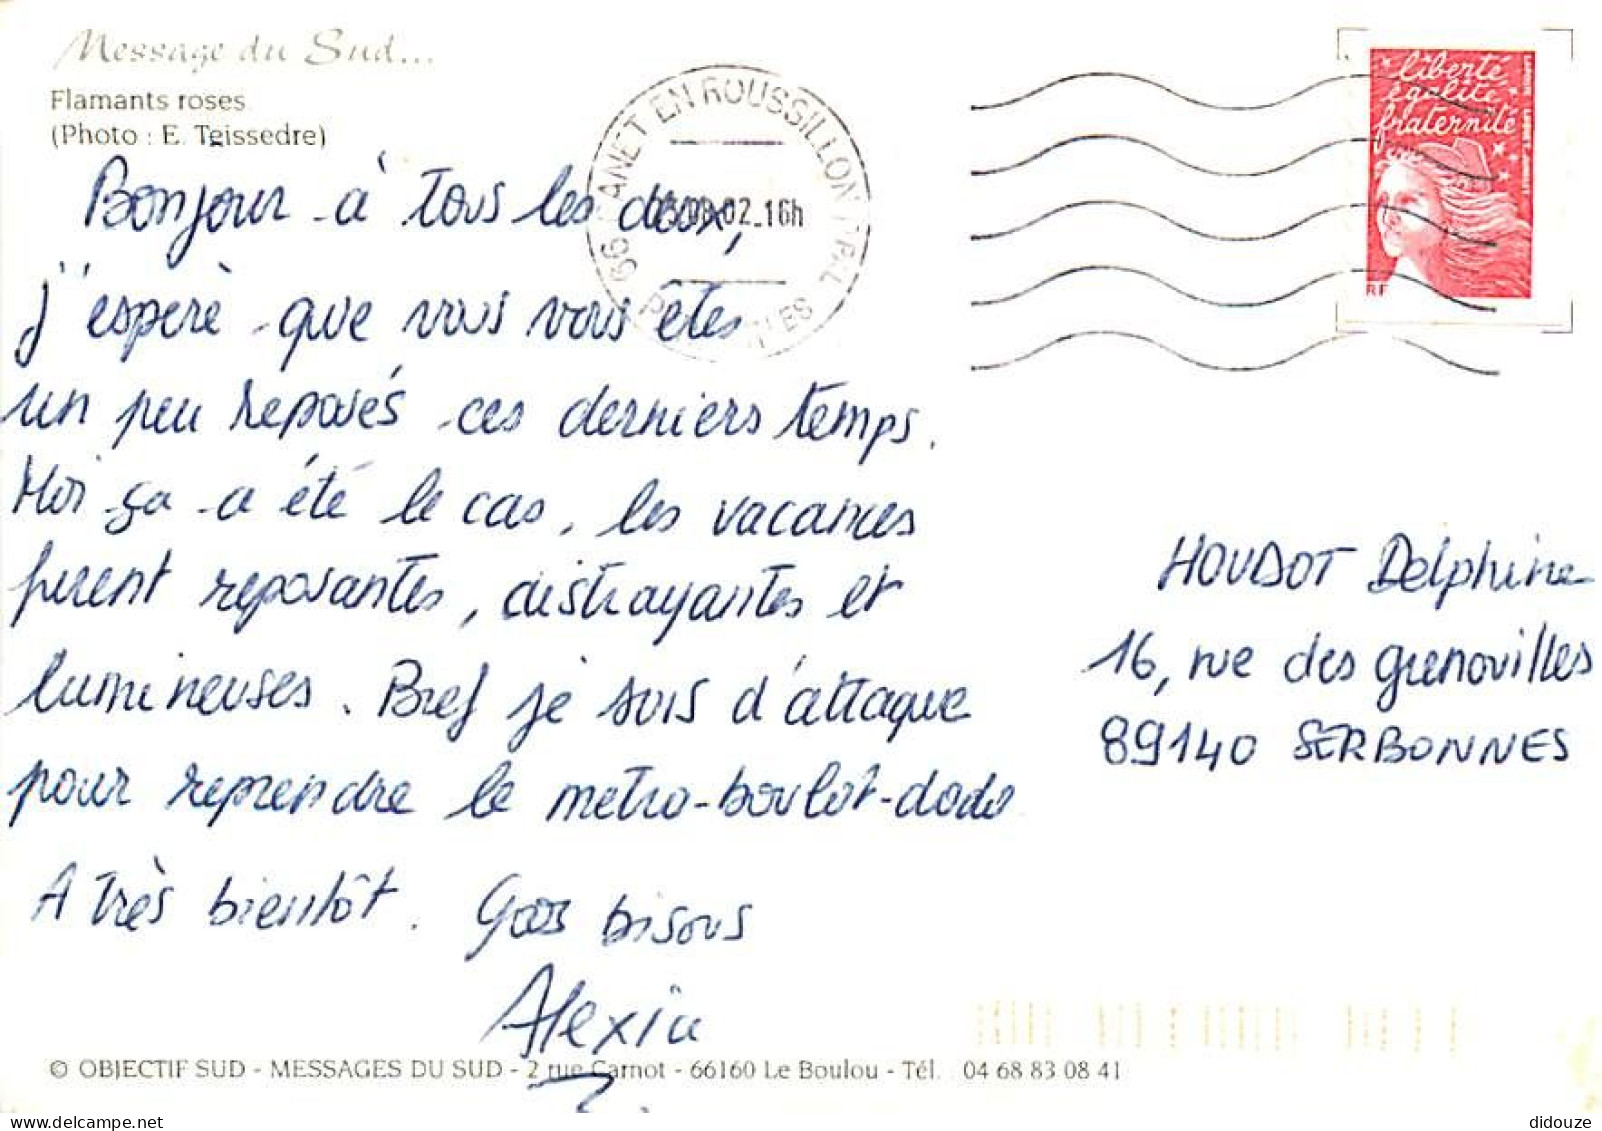 Message du Sud...
Flamants roses
(Photo : E. Teissedre)
66 CANET EN ROUSSILLON PPAL
02-16h
liberté
égalité
fraternité
RF
LA POSTE
Bonjour à tous les deux,
j'espère que vous vous êtes
un peu reposés ces derniers temps.
Moi ça a été le cas, les vacances
furent reposantes, distrayantes et
lumineuses. Bref je suis d'attaque
pour reprendre le metro-boulot-dodo
A très bientôt. Gros bisous
Alexia
HOUDOT Delphine
16, rue des grenouilles
89140 SERBONNES
© OBJECTIF SUD - MESSAGES DU SUD - 2 rue Carnot - 66160 Le Boulou - Tél. 04 68 83 08 41
didouze